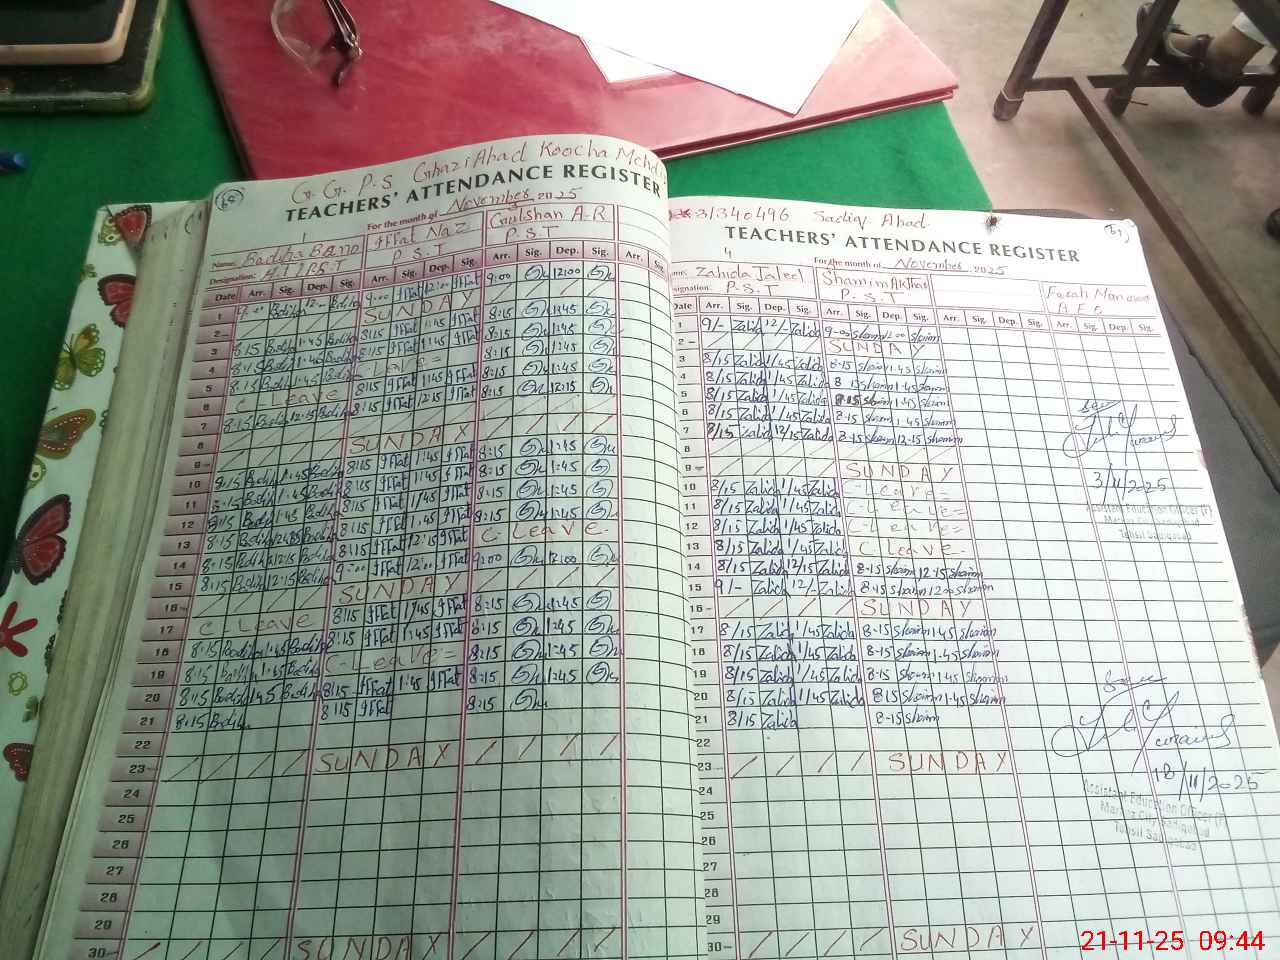 G. G. P.S Ghazi Abad Koocha Mehdi
TEACHERS' ATTENDANCE REGISTER
For the month of November 2025
Name: Badiha Bano Iffat Naz Gulshan A-R
Designation: P.S.T P.S.T
Date Arr. Sig. Dep. Sig. Arr. Sig. Dep. Sig. Arr. Sig. Dep. Sig. Arr. Sig.
1 9:00 Iffat 12:00 Iffat 9:00 12:00
2 SUNDAY
3 8:15 Badiha 1:45 Badiha 8:15 Iffat 1:45 Iffat 8:15 1:45
4 8:15 Badiha 1:45 Badiha 8:15 Iffat 1:45 Iffat 8:15 1:45
5 8:15 Badiha 1:45 Badiha 8:15 1:45
6 C Leave 8:15 Iffat 1:45 Iffat 8:15 1:45
7 8:15 Badiha 12:15 Badiha 8:15 Iffat 12:15 Iffat 8:15 12:15
8
9 SUNDAY
10 8:15 Badiha 1:45 Badiha 8:15 Iffat 1:45 Iffat 8:15 1:45
11 8:15 Badiha 1:45 Badiha 8:15 Iffat 1:45 Iffat 8:15 1:45
12 8:15 Badiha 1:45 Badiha 8:15 Iffat 1:45 Iffat 8:15 1:45
13 8:15 Badiha Badiha 8:15 Iffat 1:45 Iffat 8:15 1:45
14 8:15 Badiha 12:15 Badiha 8:15 Iffat 12:15 Iffat C Leave
15 8:15 Badiha 12:15 Badiha 9:00 Iffat 12:00 Iffat 9:00 12:00
16 SUNDAY
17 C Leave 8:15 Iffat 1:45 Iffat 8:15 1:45
18 8:15 Badiha 1:45 Badiha 8:15 Iffat 1:45 Iffat 8:15 1:45
19 8:15 Badiha 1:45 Badiha C-Leave= 8:15 1:45
20 8:15 Badiha 1:45 Badiha 8:15 Iffat 1:45 Iffat 8:15 1:45
21 8:15 Badiha 8:15 Iffat 8:15
22
23 SUNDAY
24
25
26
27
28
29
30 SUNDAY
31340496 Sadiq Abad
TEACHERS' ATTENDANCE REGISTER
4
For the month of November 2025
Zahida Jaleel Shamim Akhtar Farah
Designation: P.S.T P.S.T
Date Arr. Sig. Dep. Sig. Arr. Sig. Dep. Sig. Arr. Sig. Dep. Sig. Arr. Sig. Dep. Sig.
1 9/- Zalida 12/- Zalida 9-00 Shamim 12-00 Shamim
2 SUNDAY
3 8/15 Zalida 1/45 Zalida 8-15 Shamim 1-45 Shamim
4 8/15 Zalida 1/45 Zalida 8-15 Shamim 1-45 Shamim
5 8/15 Zalida 1/45 Zalida 8-15 Shamim 1-45 Shamim
6 8/15 Zalida 1/45 Zalida 8-15 Shamim 1-45 Shamim
7 8/15 Zalida 12/15 Zalida 8-15 Shamim 12-15 Shamim
8
9 SUNDAY
10 8/15 Zalida 1/45 Zalida C-Leave=
3/11/2025
11 8/15 Zalida 1/45 Zalida C-Leave=
Assistant Education Officer (F)
12 8/15 Zalida 1/45 Zalida C-Leave=
Tehsil Sadiqabad
13 8/15 Zalida 1/45 Zalida C Leave-
14 8/15 Zalida 12/15 Zalida 8-15 Shamim 12-15 Shamim
15 9/- Zalida 12/- Zalida 8-15 Shamim 12-00 Shamim
16 SUNDAY
17 8/15 Zalida 1/45 Zalida 8-15 Shamim 1-45 Shamim
18 8/15 Zalida 1/45 Zalida 8-15 Shamim 1-45 Shamim
19 8/15 Zalida 1/45 Zalida 8-15 Shamim 1-45 Shamim
20 8/15 Zalida 1/45 Zalida 8-15 Shamim 1-45 Shamim
21 8/15 Zalida 8-15 Shamim
22
23 SUNDAY
18/11/2025
24
Assistant Education Officer (F)
25
Markaz City Sadiqabad
Tehsil Sadiqabad
26
27
28
29
30 SUNDAY
21-11-25 09:44